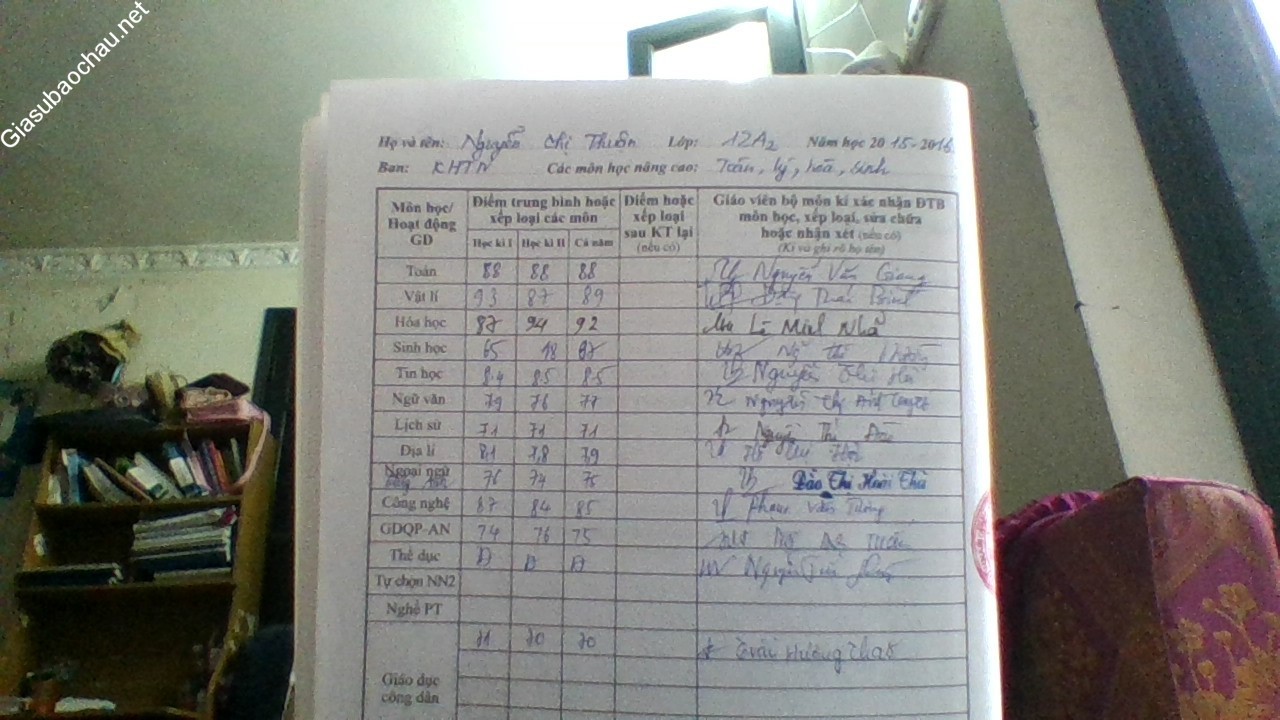 Giasubaochau.net
Họ và tên: Nguyễn Chị Thuân Lớp: 12A2 Năm học 2015-2016
Ban: KHTN Các môn học nâng cao: Toán, lý, hoá, sinh
Môn học/ Hoạt động GD Điểm trung bình hoặc xếp loại các môn Điểm hoặc xếp loại sau KT lại (nếu có) Giáo viên bộ môn kí xác nhận ĐTB môn học, xếp loại, sửa chữa hoặc nhận xét (nếu có) (Kí và ghi rõ họ tên)
Học kì I Học kì II Cả năm
Toán 88 88 88 Nguyễn Văn Giang
Vật lí 93 87 89
Hóa học 87 94 92 Lê Minh Nhã
Sinh học 65
Tin học 8.4 8.5 8.5 Nguyễn Thị Hà
Ngữ văn 79 76 77 Nguyễn Thị Ánh Tuyết
Lịch sử 71 71 71 Nguyễn Thị
Địa lí 81 78 79
Ngoại ngữ 76 74 75 Đào Thị Hoài Thu
Công nghệ 87 84 85 Phạm Văn Tường
GDQP-AN 74 76 75
Thể dục Đ Đ Đ Nguyễn
Tự chọn NN2
Nghề PT
Giáo dục công dân 71 70 70 Trần Hương Thảo